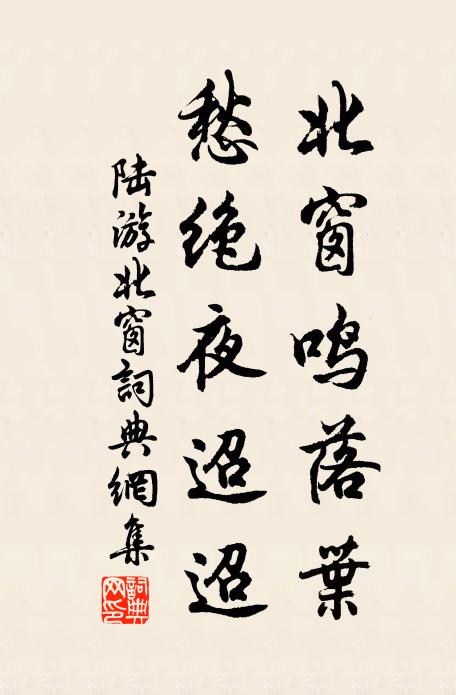 北窗鸣落葉
愁绝夜迢迢
陆游北窗詞典網集
詞典網印